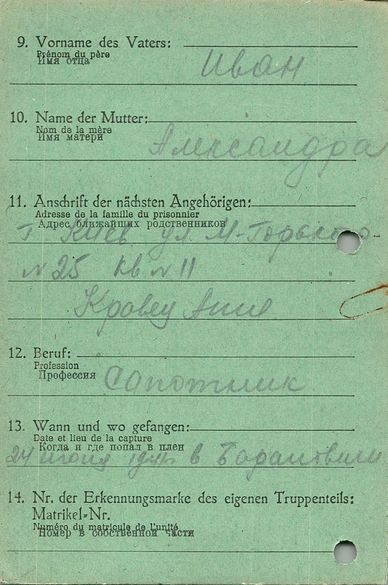 9. Vorname des Vaters:
Prénom du père
Имя отца
Иван
10. Name der Mutter:
Nom de la mère
Имя матери
Александра
11. Anschrift der nächsten Angehörigen:
Adresse de la famille du prisonnier
Адрес ближайших родственников
г. Киев ул. М-Горького
№ 25 кв. № 11
Кравец
12. Beruf:
Profession
Профессия
Сапожник
13. Wann und wo gefangen:
Date et lieu de la capture
Когда и где попал в плен
24 1941 в Барановичи
14. Nr. der Erkennungsmarke des eigenen Truppenteils:
Matrikel-Nr.
Numéro du matricule de l'unité
Номер в собственной части